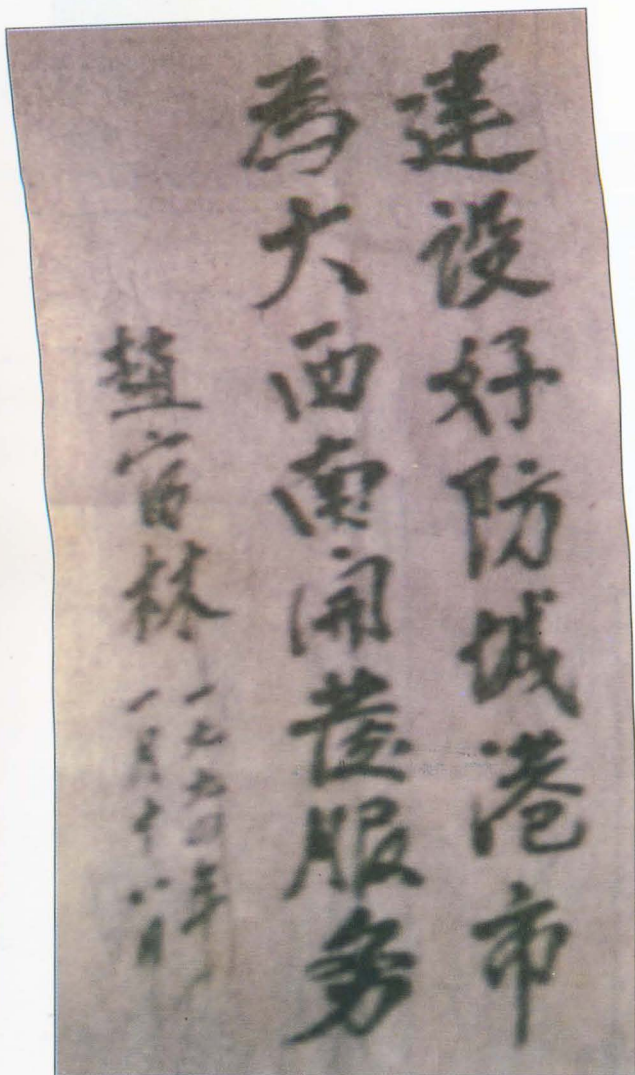 建设好防城港市
為大西南開發服务
趙富林
一九九四年
一月十八日